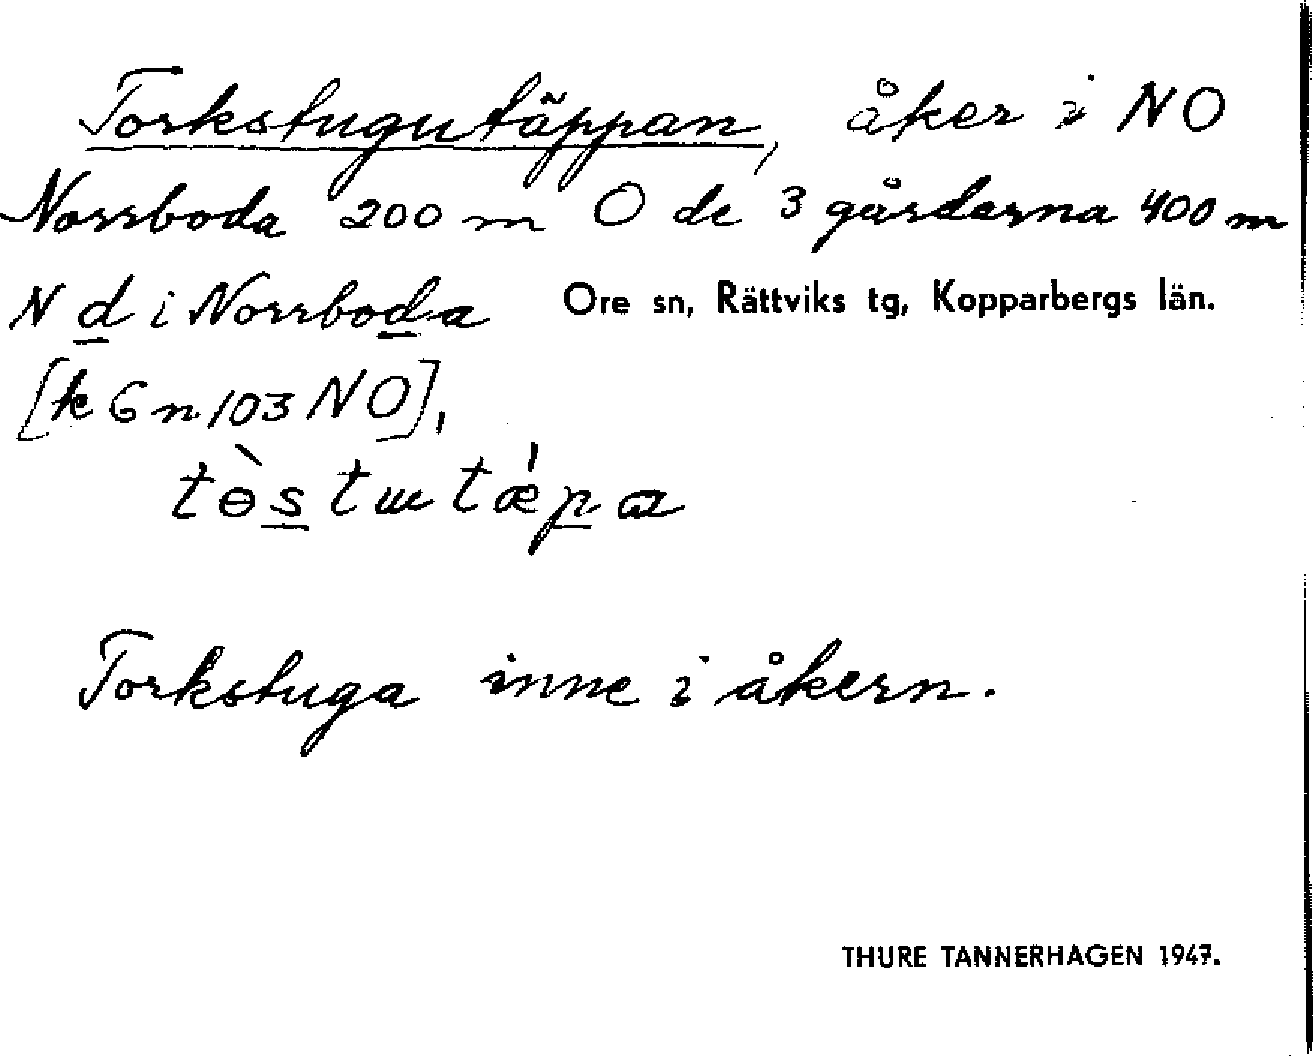 Torkstugutäppan, åker i NO
Norrboda 200 m O de 3 gårdarna 400 m
N d i Norrboda Ore sn, Rättviks tg, Kopparbergs län.
[k 6 n 103 NO],
tɵ̀stɯtǽpɑ
Torkstuga inne i åkern.
THURE TANNERHAGEN 1947.